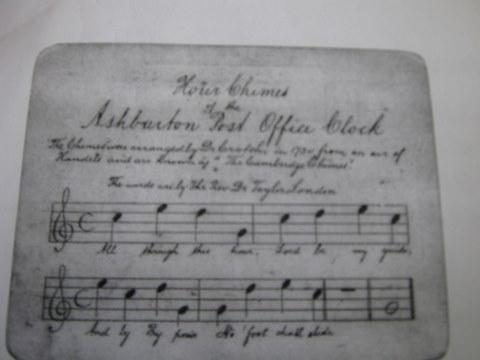 Hour Chimes
of the
Ashburton Post Office Clock
The Chimes were arranged by Dr Crotch in 1730 from an air of
Handels and are known by "The Cambridge Chimes".
The words are by the Rev. Dr Taylor London
All through this hour, Lord be my guide,
And by Thy power No foot shall slide